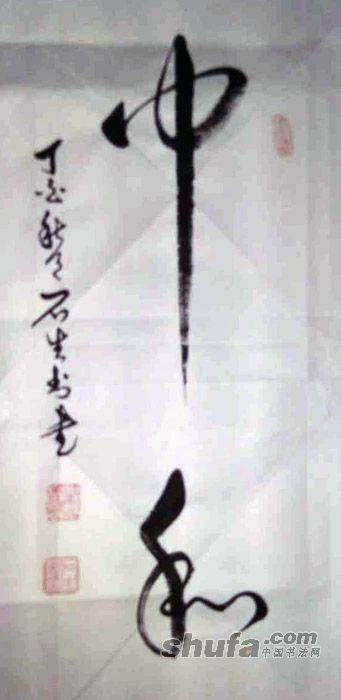 中和
丁亥秋月石生書
shufa.com
中国书法网